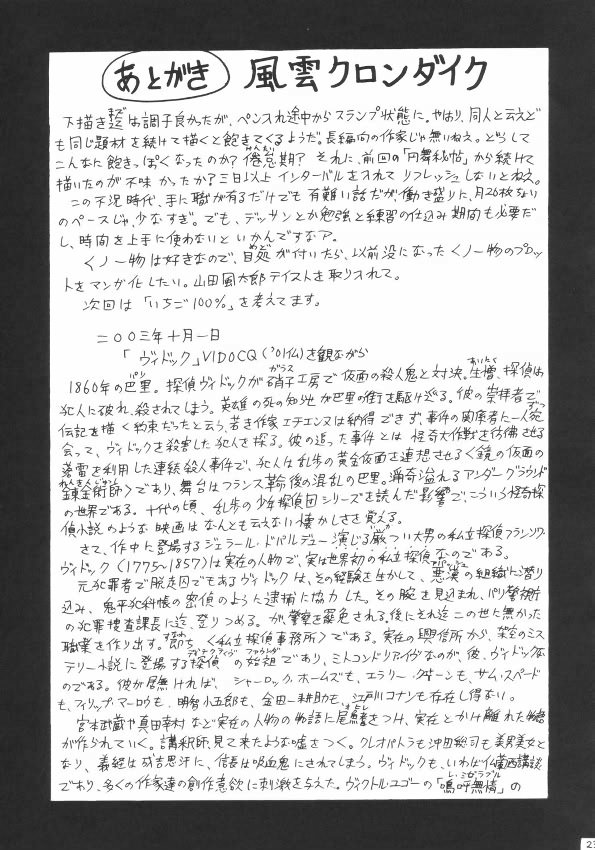 あとがき 風雲クロンダイク
下描き迄は調子良かったが、ペン入れ途中からスランプ状態に。やはり、同人と云えど
も同じ題材を続けて描くと飽きてくるようだ。長編向の作家じゃ無いねえ。どうして
こんなに飽きっぽくなったのか?倦怠期?それに、前回の「円舞秘帖」から続けて
描いたのが不味かったか?三日以上インターバルを入れてリフレッシュしないとねえ。
この不況時代、手に職が有るだけでも有難い話だが、働き盛りに、月26枚ちょり
のペースじゃ、少なすぎ。でも、デッサンとか勉強と練習の仕込み期間も必要だ
し、時間を上手に使わないといかんですなア。
くノ一物は好きなので、目処が付いたら、以前没になったくノ一物のプロッ
トをマンガ化したい。山田風太郎テイストを取り入れて。
次回は「いちご100%」を考えてます。
二〇〇三年十月一日
「ヴィドック」VIDOCQ('01仏)を観ながら
1860年の巴里。探偵ヴィドックが硝子工房で仮面の殺人鬼と対決。生憎、探偵は
犯人に破れ、殺されてしまう。英雄の死の知らせが巴里の街を駆け巡る。彼の崇拝者で
伝記を描く約束だったと云う若き作家エチエンヌは納得できず、事件の関係者に一人宛
会って、ヴィドックを殺害した犯人を探る。彼の追った事件とは怪奇大作戦を彷彿させる
落雷を利用した連続殺人事件で、犯人は乱歩の黄金仮面を連想させる〈鏡の仮面の
錬金術師〉であり、舞台はフランス革命後の混乱の巴里。涌奇溢れるアンダーグラウンド
の世界である。十代の頃、乱歩の少年探偵団シリーズを読んだ影響で、こういう怪奇探
偵小説のような映画はなんとも云えない懐かしさを覚える。
さて、作中に登場するジェラール・ドパルデュー演じる厳つい大男の私立探偵フランソワ・
ヴィドック(1775~1857)は実在の人物で、実は世界初の私立探偵なのである。
元犯罪者で脱走囚でもあるヴィドックは、その経験を生かして、悪漢の組織に潜り
込み、鬼平犯科帳の密偵のように逮捕に協力した。その腕を見込まれ、パリ警察庁
の犯罪捜査課長に迄、登りつめる。が、警察を罷免される。後にそれ迄この世に無かった
職業を作り出す。即ち〈私立探偵事務所〉である。実在の興信所から、架空のミス
テリー小説に登場する探偵の始祖であり、ミトコンドリアイヴなのが、彼、ヴィドックな
のである。彼が居無ければ、シャーロック・ホームズも、エラリー・クイーンも、サム・スペード
も、フィリップ・マーロウも、明智小五郎も、金田一耕助も、江戸川コナンも存在し得ない。
宮本武蔵や真田幸村など実在の人物の物語に尾鰭をつけ、実在とかけ離れた物語
が作られていく。講釈師、見て来たような嘘をつく。クレオパトラも沖田総司も美男美女と
なり、義経は成吉思汗に、信長は吸血鬼にされてしまう。ヴィドックも、いわば仏蘭西講談
であり、多くの作家達の創作意欲に刺激を与えた。ヴィクトル・ユゴーの「嗚呼無情」の